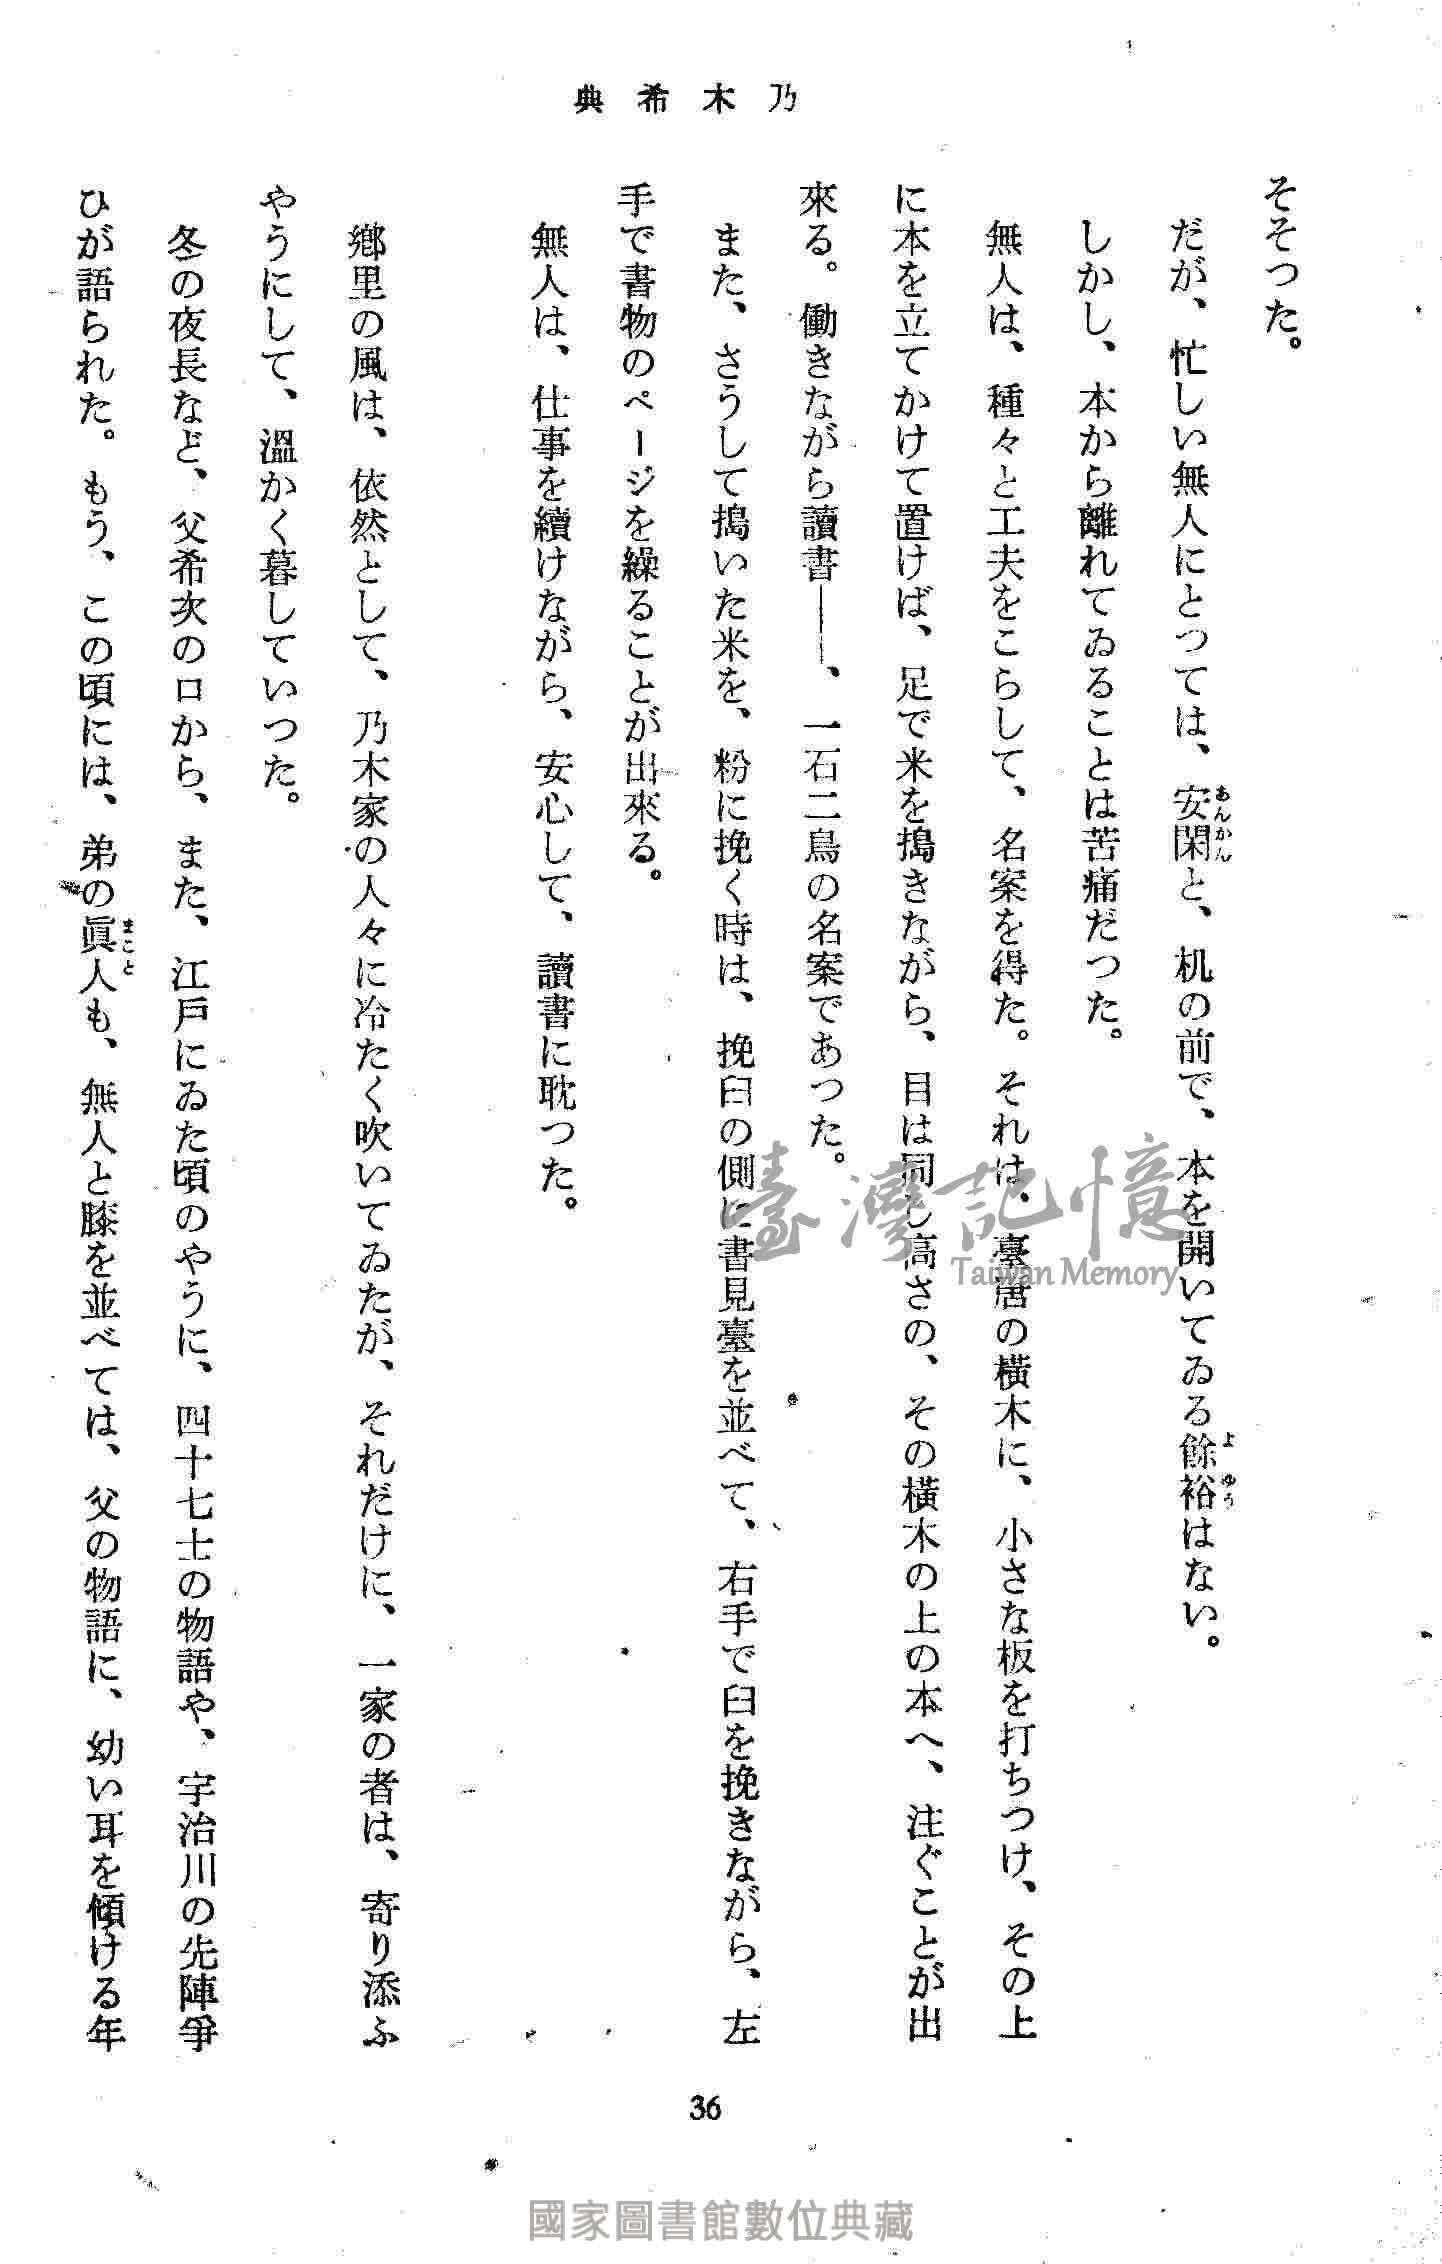 乃木希典
そそつた。
だが、忙しい無人にとつては、安閑と、机の前で、本を開いてゐる餘裕はない。
あんかん
よゆう
しかし、本から離れてゐることは苦痛だつた。
無人は、種々と工夫をこらして、名案を得た。それは、臺唐の橫木に、小さな板を打ちつけ、その上
に本を立てかけて置けば、足で米を搗きながら、目は同じ高さの、その橫木の上の本へ、注ぐことが出
來る。働きながら讀書――、一石二鳥の名案であつた。
また、さうして搗いた米を、粉に挽く時は、挽臼の側に書見臺を並べて、右手で臼を挽きながら、左
手で書物のページを繰ることが出來る。
無人は、仕事を續けながら、安心して、讀書に耽つた。
鄕里の風は、依然として、乃木家の人々に冷たく吹いてゐたが、それだけに、一家の者は、寄り添ふ
やうにして、溫かく暮していつた。
冬の夜長など、父希次の口から、また、江戶にゐた頃のやうに、四十七士の物語や、宇治川の先陣爭
ひが語られた。もう、この頃には、弟の眞人も、無人と膝を並べては、父の物語に、幼い耳を傾ける年
まこと
36
臺灣記憶
Taiwan Memory
國家圖書館數位典藏